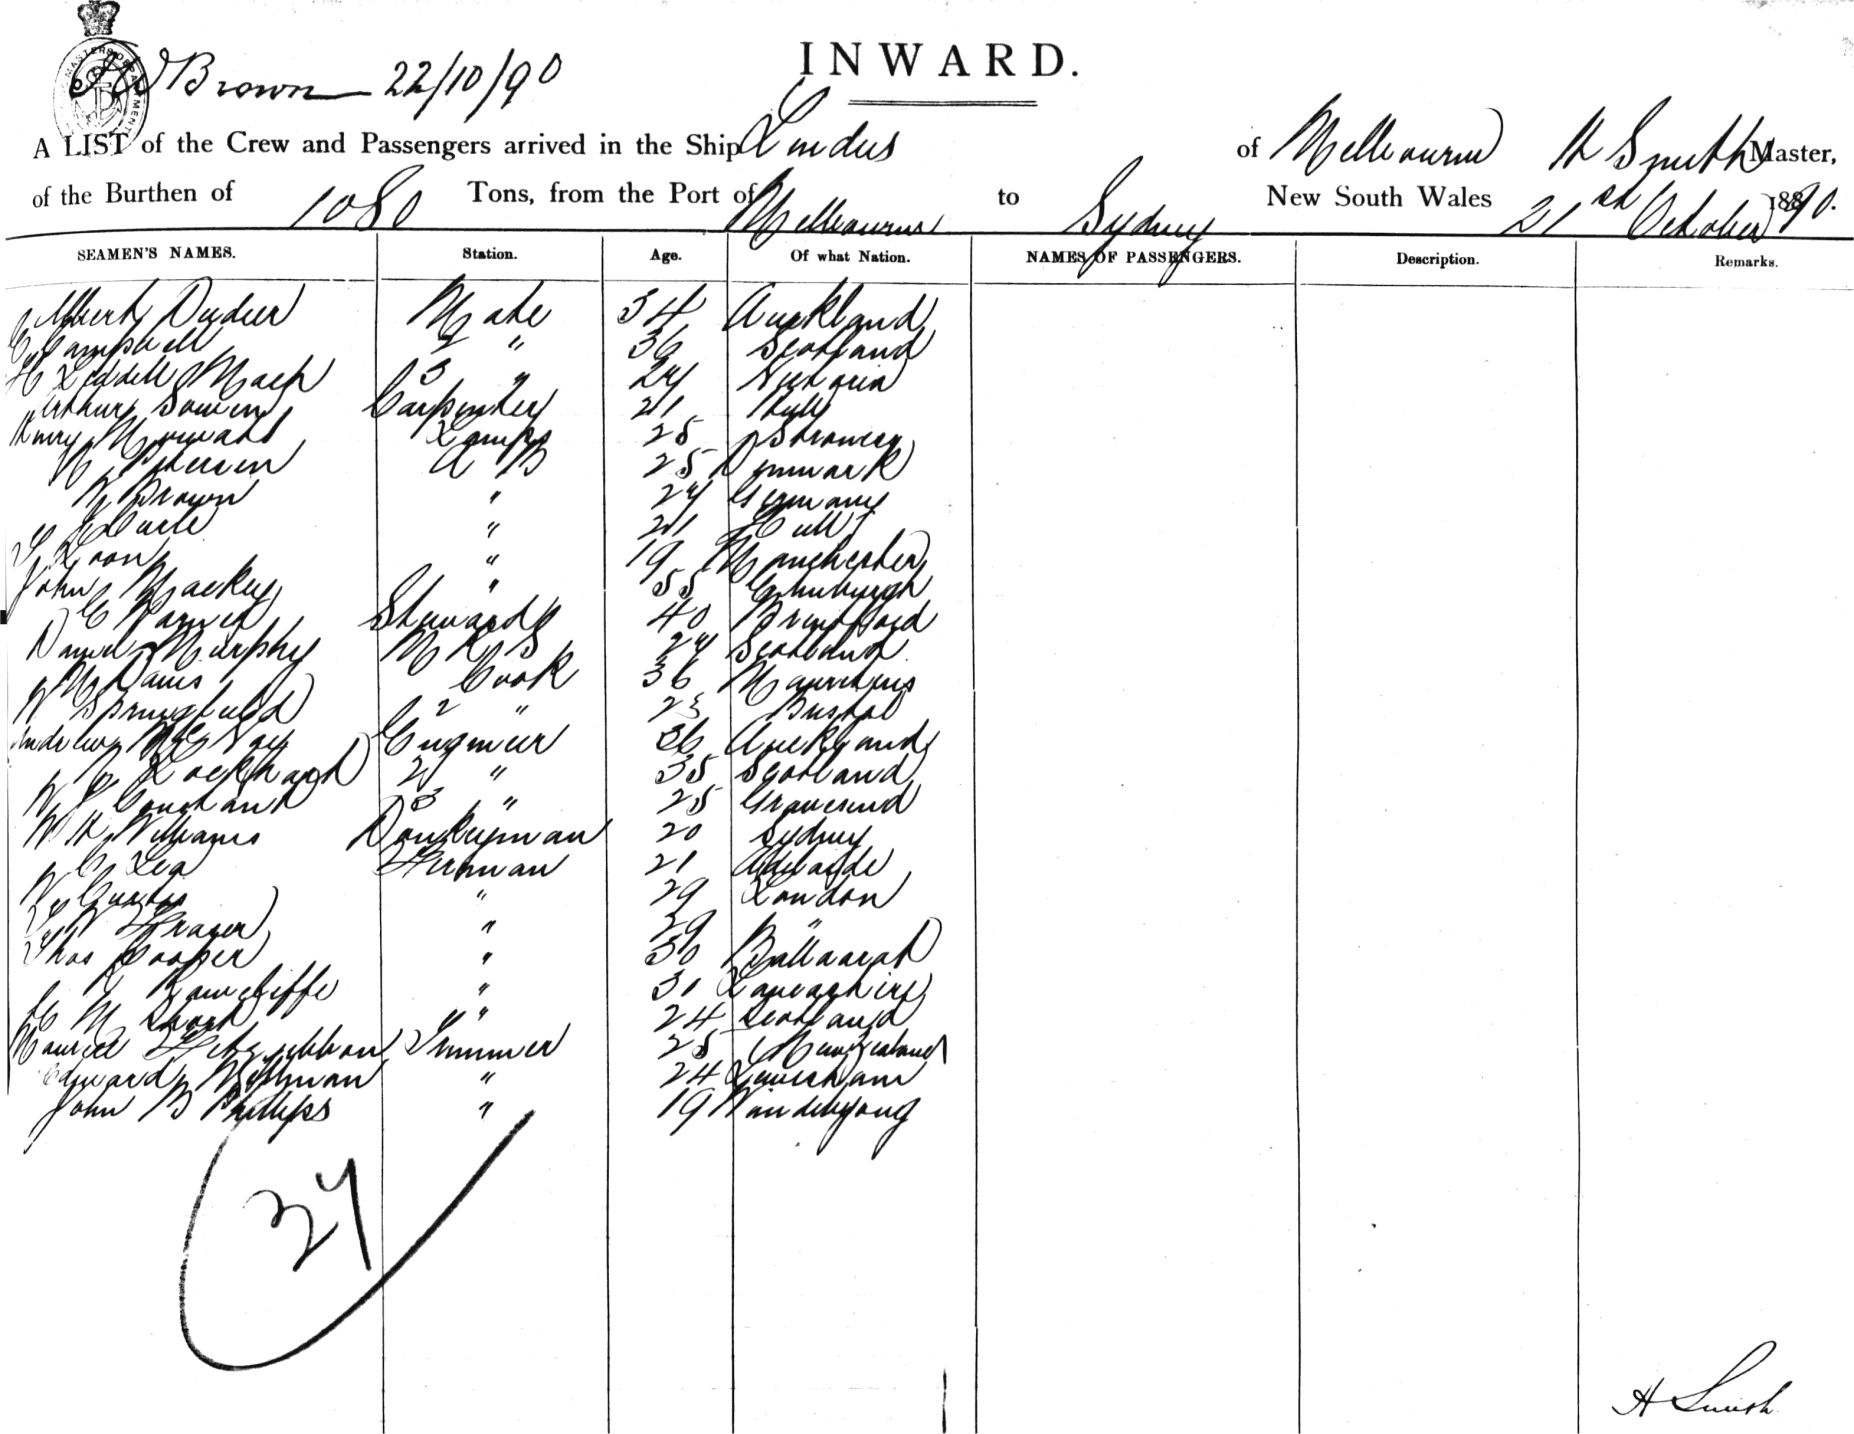 INWARD.
Brown 22/10/90
A LIST of the Crew and Passengers arrived in the Ship Lindus of Melbourne H Smith Master,
of the Burthen of 1080 Tons, from the Port of Melbourne to Sydney New South Wales 21st October 1890.
SEAMEN'S NAMES. Station. Age. Of what Nation. NAMES OF PASSENGERS. Description. Remarks.
Albert Mate 34 Auckland
C Campbell 2 " 36 Scotland
H Liddell 3 " 24 Victoria
Arthur Carpenter 21
Henry Lamps 25
Petersen A B 25 Denmark
Brown " 24 Germany
" 21 Hull
" 19 Manchester
John Mackey " 55 Edinburgh
C Steward 40
Daniel Murphy M R S 24 Scotland
Davis Cook 36 Mauritius
W Springfield 2 " 23 Bristol
Andrew Engineer 36 Auckland
Lockhart 2 " 35 Scotland
W 3 " 25 Gravesend
W H Williams Donkeyman 20 Sydney
C Lea Fireman 21 Adelaide
W Curtis " 29 London
W Fraser " 29 "
Thos Cooper " 30 Ballaarat
Rawcliffe " 31 Lancashire
M Short " 24 Scotland
Maurice Fitzgibbon Trimmer 25 New Zealand
Edward " 24 Lewisham
John B Phillips " 19
27
H Smith